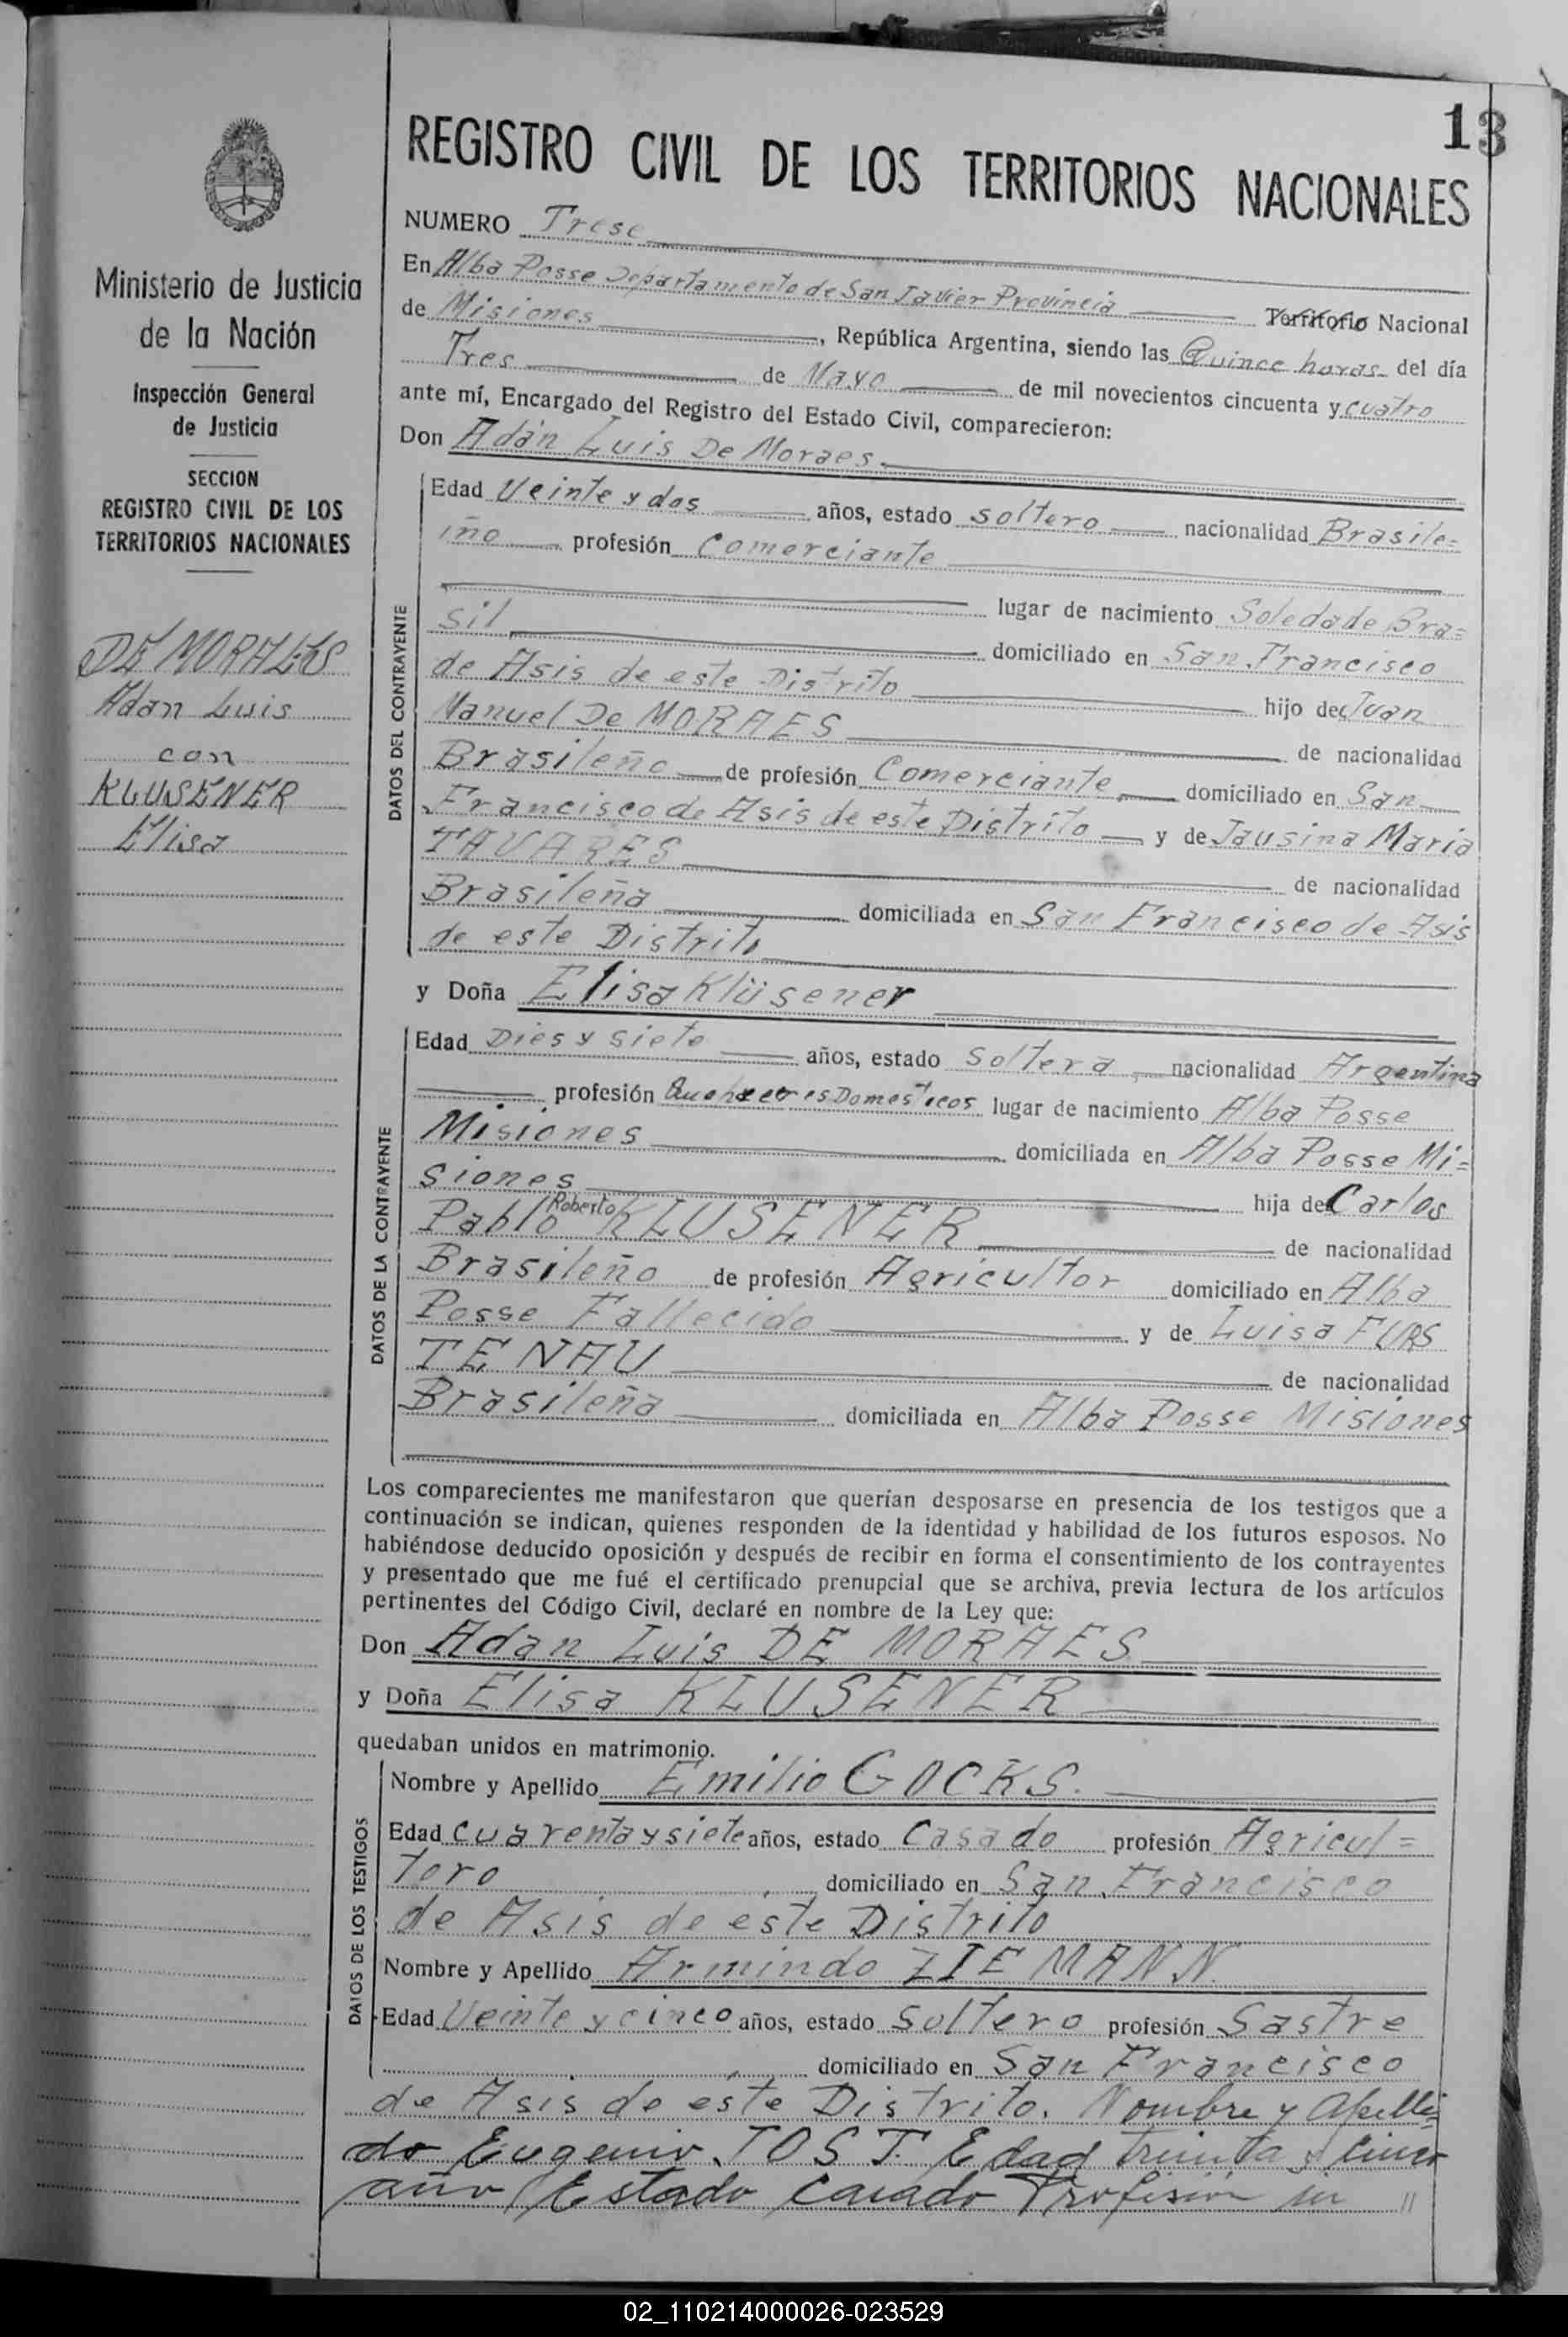 13
REGISTRO CIVIL DE LOS TERRITORIOS NACIONALES
Ministerio de Justicia
de la Nación
Inspección General
de Justicia
SECCION
REGISTRO CIVIL DE LOS
TERRITORIOS NACIONALES
DE MORAES
Adan Luis
con
KLUSENER
Elisa
NUMERO Trese
En Alba Posse Departamento de San Javier Provincia Territorio Nacional
de Misiones, República Argentina, siendo las Quince horas del día
Tres de Mayo de mil novecientos cincuenta y cuatro
ante mí, Encargado del Registro del Estado Civil, comparecieron:
Don Adán Luis De Moraes.
DATOS DEL CONTRAYENTE
Edad Veinte y dos años, estado soltero nacionalidad Brasile=
iño profesión Comerciante
lugar de nacimiento Soledade Bra=
sil domiciliado en San Francisco
de Asis de este Distrito hijo de Juan
Manuel De MORAES de nacionalidad
Brasileño de profesión Comerciante domiciliado en San
Francisco de Asis de este Distrito y de Jausina Maria
TAVARES de nacionalidad
Brasileña domiciliada en San Francisco de Asis
de este Distrito
y Doña Elisa Klüsener
DATOS DE LA CONTRAYENTE
Edad Dies y siete años, estado Soltera nacionalidad Argentina
profesión Quehaceres Domesticos lugar de nacimiento Alba Posse
Misiones domiciliada en Alba Posse Mi=
siones hija de Carlos
Pablo Roberto KLUSENER de nacionalidad
Brasileño de profesión Agricultor domiciliado en Alba
Posse Fallecido y de Luisa FURS
TENAU de nacionalidad
Brasileña domiciliada en Alba Posse Misiones
Los comparecientes me manifestaron que querían desposarse en presencia de los testigos que a
continuación se indican, quienes responden de la identidad y habilidad de los futuros esposos. No
habiéndose deducido oposición y después de recibir en forma el consentimiento de los contrayentes
y presentado que me fué el certificado prenupcial que se archiva, previa lectura de los artículos
pertinentes del Código Civil, declaré en nombre de la Ley que:
Don Adan Luis DE MORAES
y Doña Elisa KLUSENER
quedaban unidos en matrimonio.
DATOS DE LOS TESTIGOS
Nombre y Apellido Emilio GOCKS.
Edad cuarenta y siete años, estado Casado profesión Agricul=
toro domiciliado en San Francisco
de Asis de éste Distrito
Nombre y Apellido Armindo ZIEMANN.
Edad Veinte y cinco años, estado Soltero profesión Sastre
domiciliado en San Francisco
de Asis de éste Distrito. Nombre y Apelli=
do Eugenio JOST. Edad Treinta y cinco
año Estado Casado Profesión
02_110214000026-023529